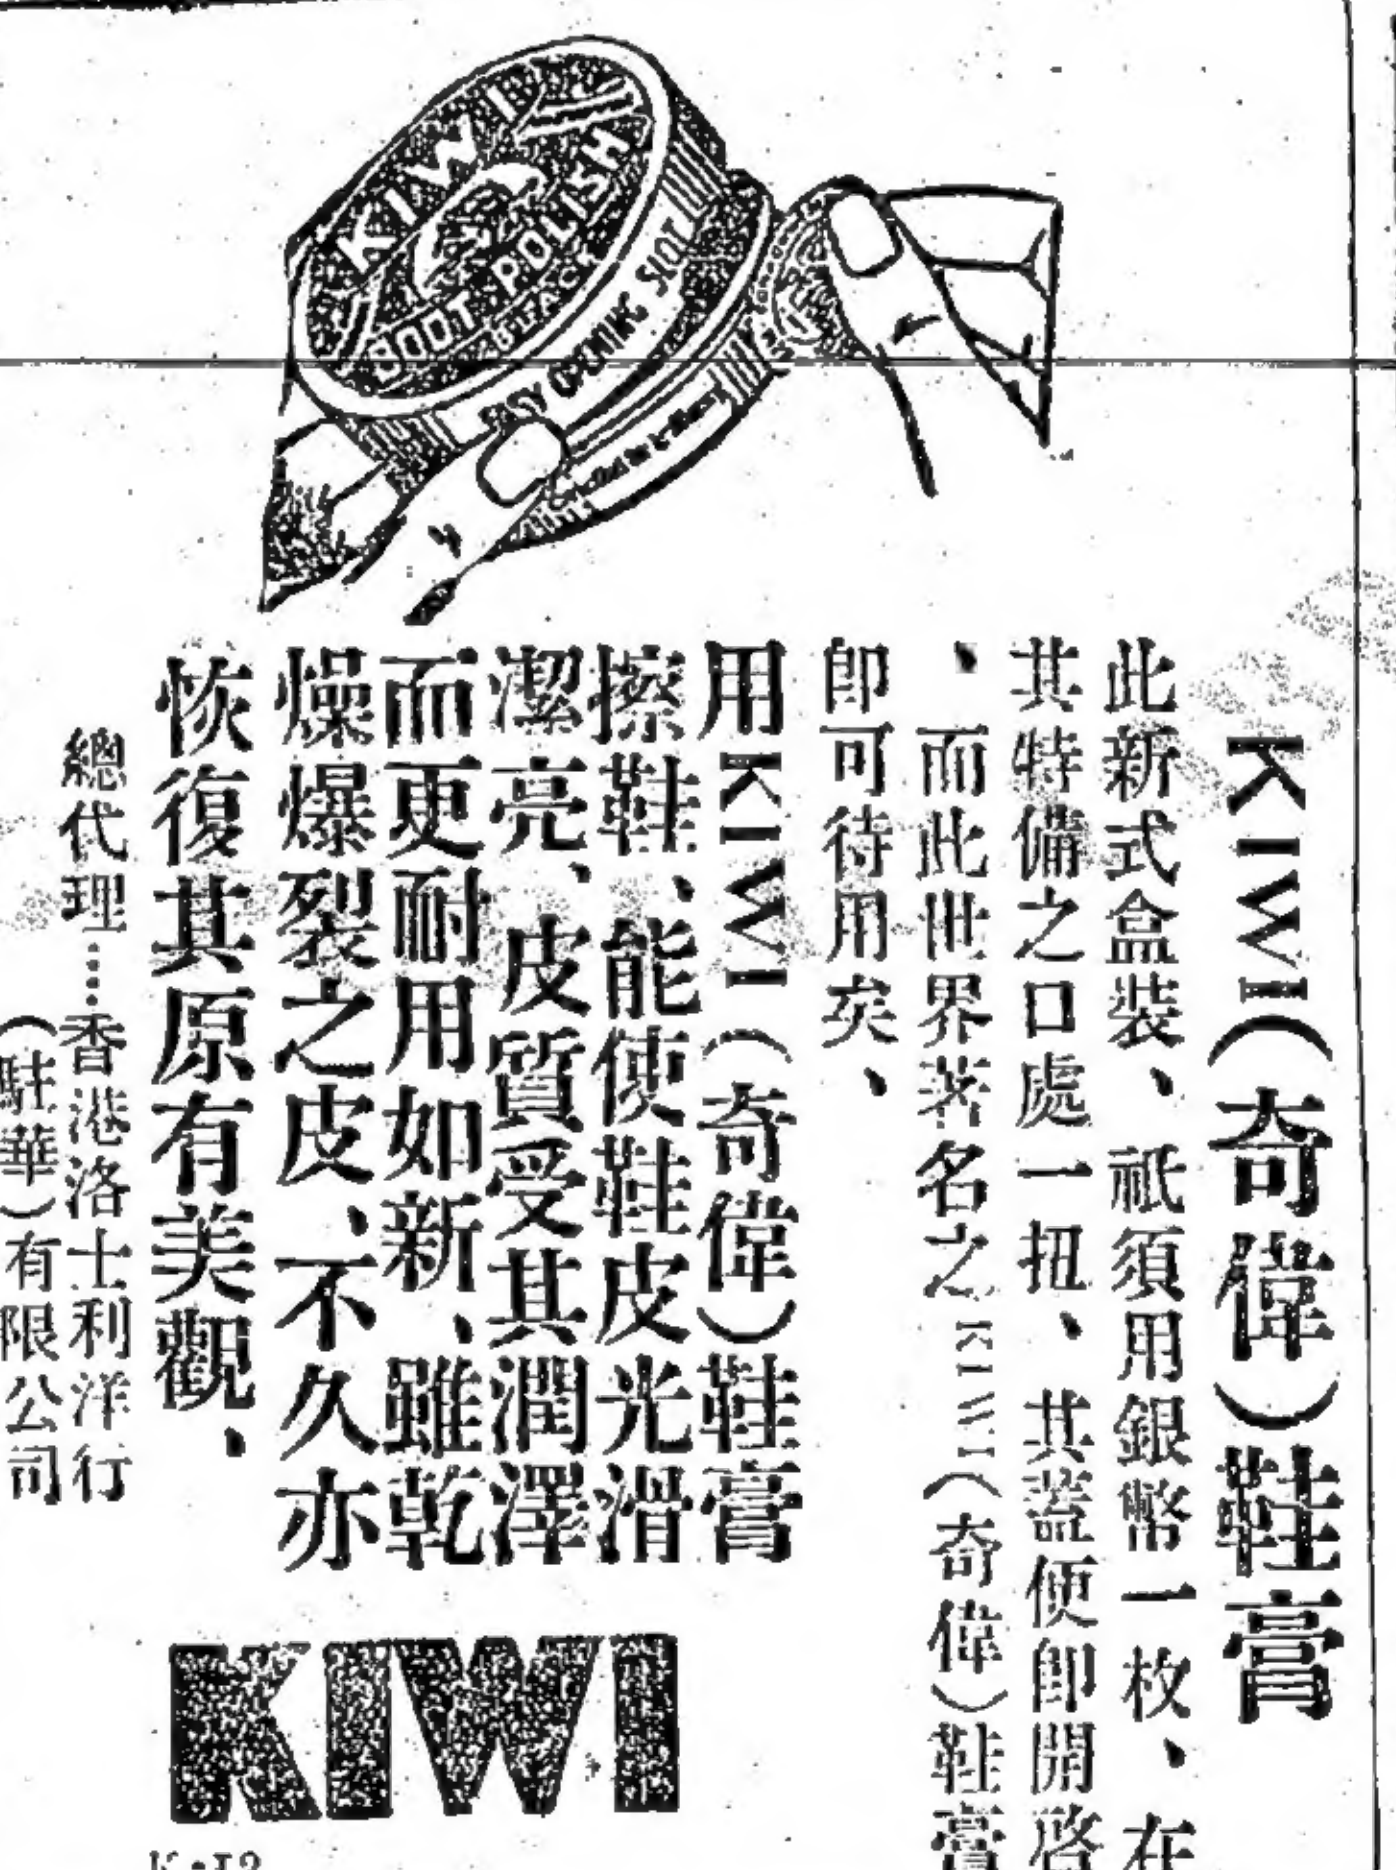 KIWI
BOOT POLISH
BLACK
EASY OPENING SLOT
KIWI(奇偉)鞋膏
此新式盒裝、祇須用銀幣一枚、在
其特備之口處一扭、其蓋便卽開啓
、而此世界著名之KIWI(奇偉)鞋膏
卽可待用矣、
用KIWI(奇偉)鞋膏
擦鞋、能使鞋皮光滑
潔亮、皮質受其潤澤
而更耐用如新、雖乾
燥爆裂之皮、不久亦
恢復其原有美觀、
總代理……香港洛士利洋行
(駐華)有限公司
KIWI